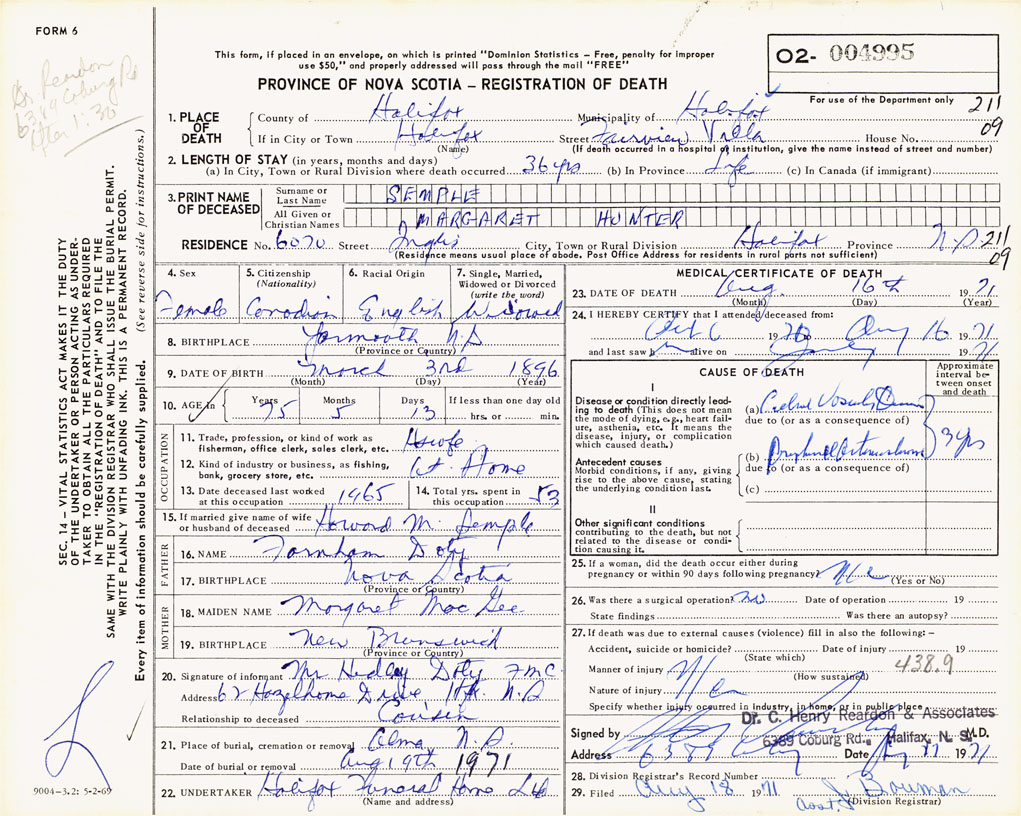 FORM 6
Dr. Reardon
6389 Coburg Rd
After 1:30
This form, if placed in an envelope, on which is printed "Dominion Statistics – Free, penalty for improper
use $50," and properly addressed will pass through the mail "FREE"
PROVINCE OF NOVA SCOTIA – REGISTRATION OF DEATH
02- 004995
For use of the Department only
211
09
1. PLACE OF DEATH
County of Halifax Municipality of Halifax
If in City or Town Halifax Street Fairview Villa House No.
(Name) (If death occurred in a hospital or institution, give the name instead of street and number)
2. LENGTH OF STAY (in years, months and days)
(a) In City, Town or Rural Division where death occurred 36 yrs (b) In Province Life (c) In Canada (if immigrant)
3. PRINT NAME OF DECEASED
Surname or Last Name SEMPLE
All Given or Christian Names MARGARET HUNTER
RESIDENCE No. 6070 Street Inglis City, Town or Rural Division Halifax Province N.S. 211
09
(Residence means usual place of abode. Post Office Address for residents in rural parts not sufficient)
4. Sex Female
5. Citizenship (Nationality) Canadian
6. Racial Origin English
7. Single, Married, Widowed or Divorced (write the word) Widowed
8. BIRTHPLACE Yarmouth N.S
(Province or Country)
9. DATE OF BIRTH March 3rd 1896
(Month) (Day) (Year)
10. AGE in Years 75 Months 5 Days 13 If less than one day old hrs. or min.
OCCUPATION
11. Trade, profession, or kind of work as fisherman, office clerk, sales clerk, etc. Hswfe
12. Kind of industry or business, as fishing, bank, grocery store, etc. At Home
13. Date deceased last worked at this occupation 1965
14. Total yrs. spent in this occupation 53
15. If married give name of wife or husband of deceased Howard M. Semple
FATHER
16. NAME Farnham Doty
17. BIRTHPLACE Nova Scotia
(Province or Country)
MOTHER
18. MAIDEN NAME Margaret MacGee
19. BIRTHPLACE New Brunswick
(Province or Country)
20. Signature of informant Mr Hedley Doty
Address 62 Hazelholme Drive Hfx. N.S
Relationship to deceased Cousin
21. Place of burial, cremation or removal Alma N.S.
Date of burial or removal Aug 19th 1971
22. UNDERTAKER Halifax Funeral Home Ltd
(Name and address)
MEDICAL CERTIFICATE OF DEATH
23. DATE OF DEATH Aug. 16th 1971
(Month) (Day) (Year)
24. I HEREBY CERTIFY that I attended deceased from:
Oct 6 1970 to Aug 16 1971
and last saw h alive on 1971
CAUSE OF DEATH
Approximate interval between onset and death
I
Disease or condition directly leading to death (This does not mean the mode of dying, e.g., heart failure, asthenia, etc. It means the disease, injury, or complication which caused death.)
(a)
due to (or as a consequence of)
Antecedent causes
Morbid conditions, if any, giving rise to the above cause, stating the underlying condition last.
(b)
3 yrs
due to (or as a consequence of)
(c)
II
Other significant conditions contributing to the death, but not related to the disease or condition causing it.
25. If a woman, did the death occur either during pregnancy or within 90 days following pregnancy?
(Yes or No)
26. Was there a surgical operation? no Date of operation 19
State findings Was there an autopsy?
27. If death was due to external causes (violence) fill in also the following: –
Accident, suicide or homicide? Date of injury 19
(State which)
438.9
Manner of injury
(How sustained)
Nature of injury
Specify whether injury occurred in Industry, in home, or in public place
Dr. C. Henry Reardon & Associates
6389 Coburg Rd., Halifax, N. S.
Signed by M.D.
Address 6389 Date Aug 17 1971
28. Division Registrar's Record Number
29. Filed Aug 18 1971 J. Bowman
Asst. (Division Registrar)
SEC. 14 – VITAL STATISTICS ACT MAKES IT THE DUTY
OF THE UNDERTAKER OR PERSON ACTING AS UNDER-
TAKER TO OBTAIN ALL THE PARTICULARS REQUIRED
IN THE "REGISTRATION OF DEATH" AND TO FILE THE
SAME WITH THE DIVISION REGISTRAR WHO SHALL ISSUE THE BURIAL PERMIT.
WRITE PLAINLY WITH UNFADING INK. THIS IS A PERMANENT RECORD.
Every item of information should be carefully supplied. (See reverse side for instructions.)
9004-3.2: 5-2-69